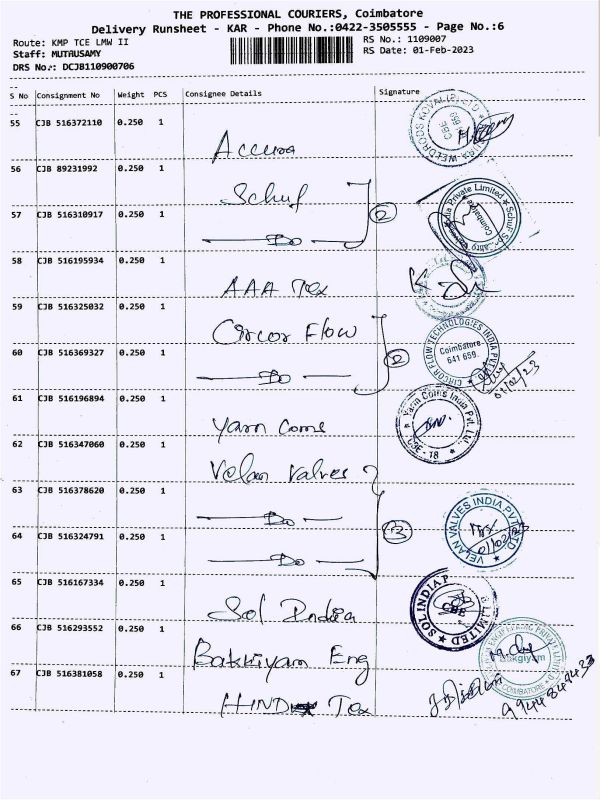 THE PROFESSIONAL COURIERS, Coimbatore
Delivery Runsheet - KAR - Phone No.:0422-3505555 - Page No.:6
Route: KMP TCE LMW II
RS No.: 1109007
Staff: MUTAUSAMY
RS Date: 01-Feb-2023
DRS No.: DCJB110900706
S No Consignment No Weight PCS Consignee Details Signature
55 CJB 516372110 0.250 1
Accura
56 CJB 89231992 0.250 1
Schuf
57 CJB 516310917 0.250 1
— Do — 2
Private Limited
Coimbatore
58 CJB 516195934 0.250 1
AAA Tex
59 CJB 516325032 0.250 1
Circor Flow
60 CJB 516369327 0.250 1
— Do — 2
CIRCOR FLOW TECHNOLOGIES INDIA PVT LTD
Coimbatore
641 659.
01/02/23
61 CJB 516196894 0.250 1
Yarn Coms
Yarn Coms India Pvt. Ltd.
CBE - 18
62 CJB 516347060 0.250 1
Velan Valves
63 CJB 516378620 0.250 1
— Do — 3
64 CJB 516324791 0.250 1
— Do —
VELAN VALVES INDIA PVT LTD
65 CJB 516167334 0.250 1
Sol India
SOL INDIA P LIMITED
CBE
66 CJB 516293552 0.250 1
Bakkiyam Eng
PRIVATE LIMITED
COIMBATORE
67 CJB 516381058 0.250 1
HIND Tex